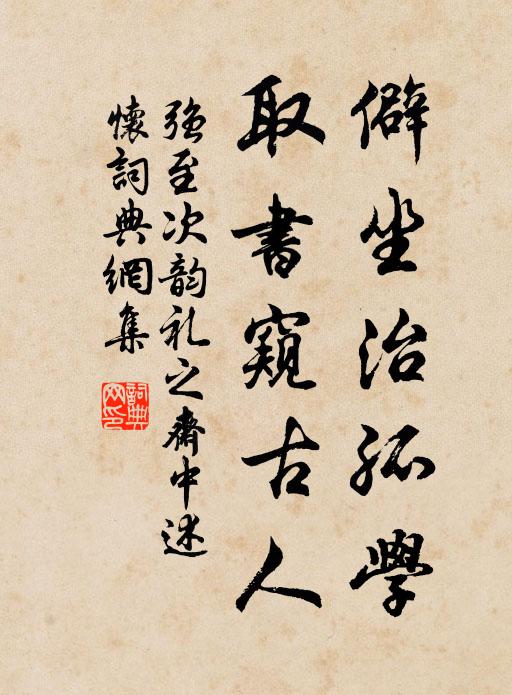 僻坐治孤學
取書窺古人
強至次韵礼之齋中述
懷詞典網集
詞典網印